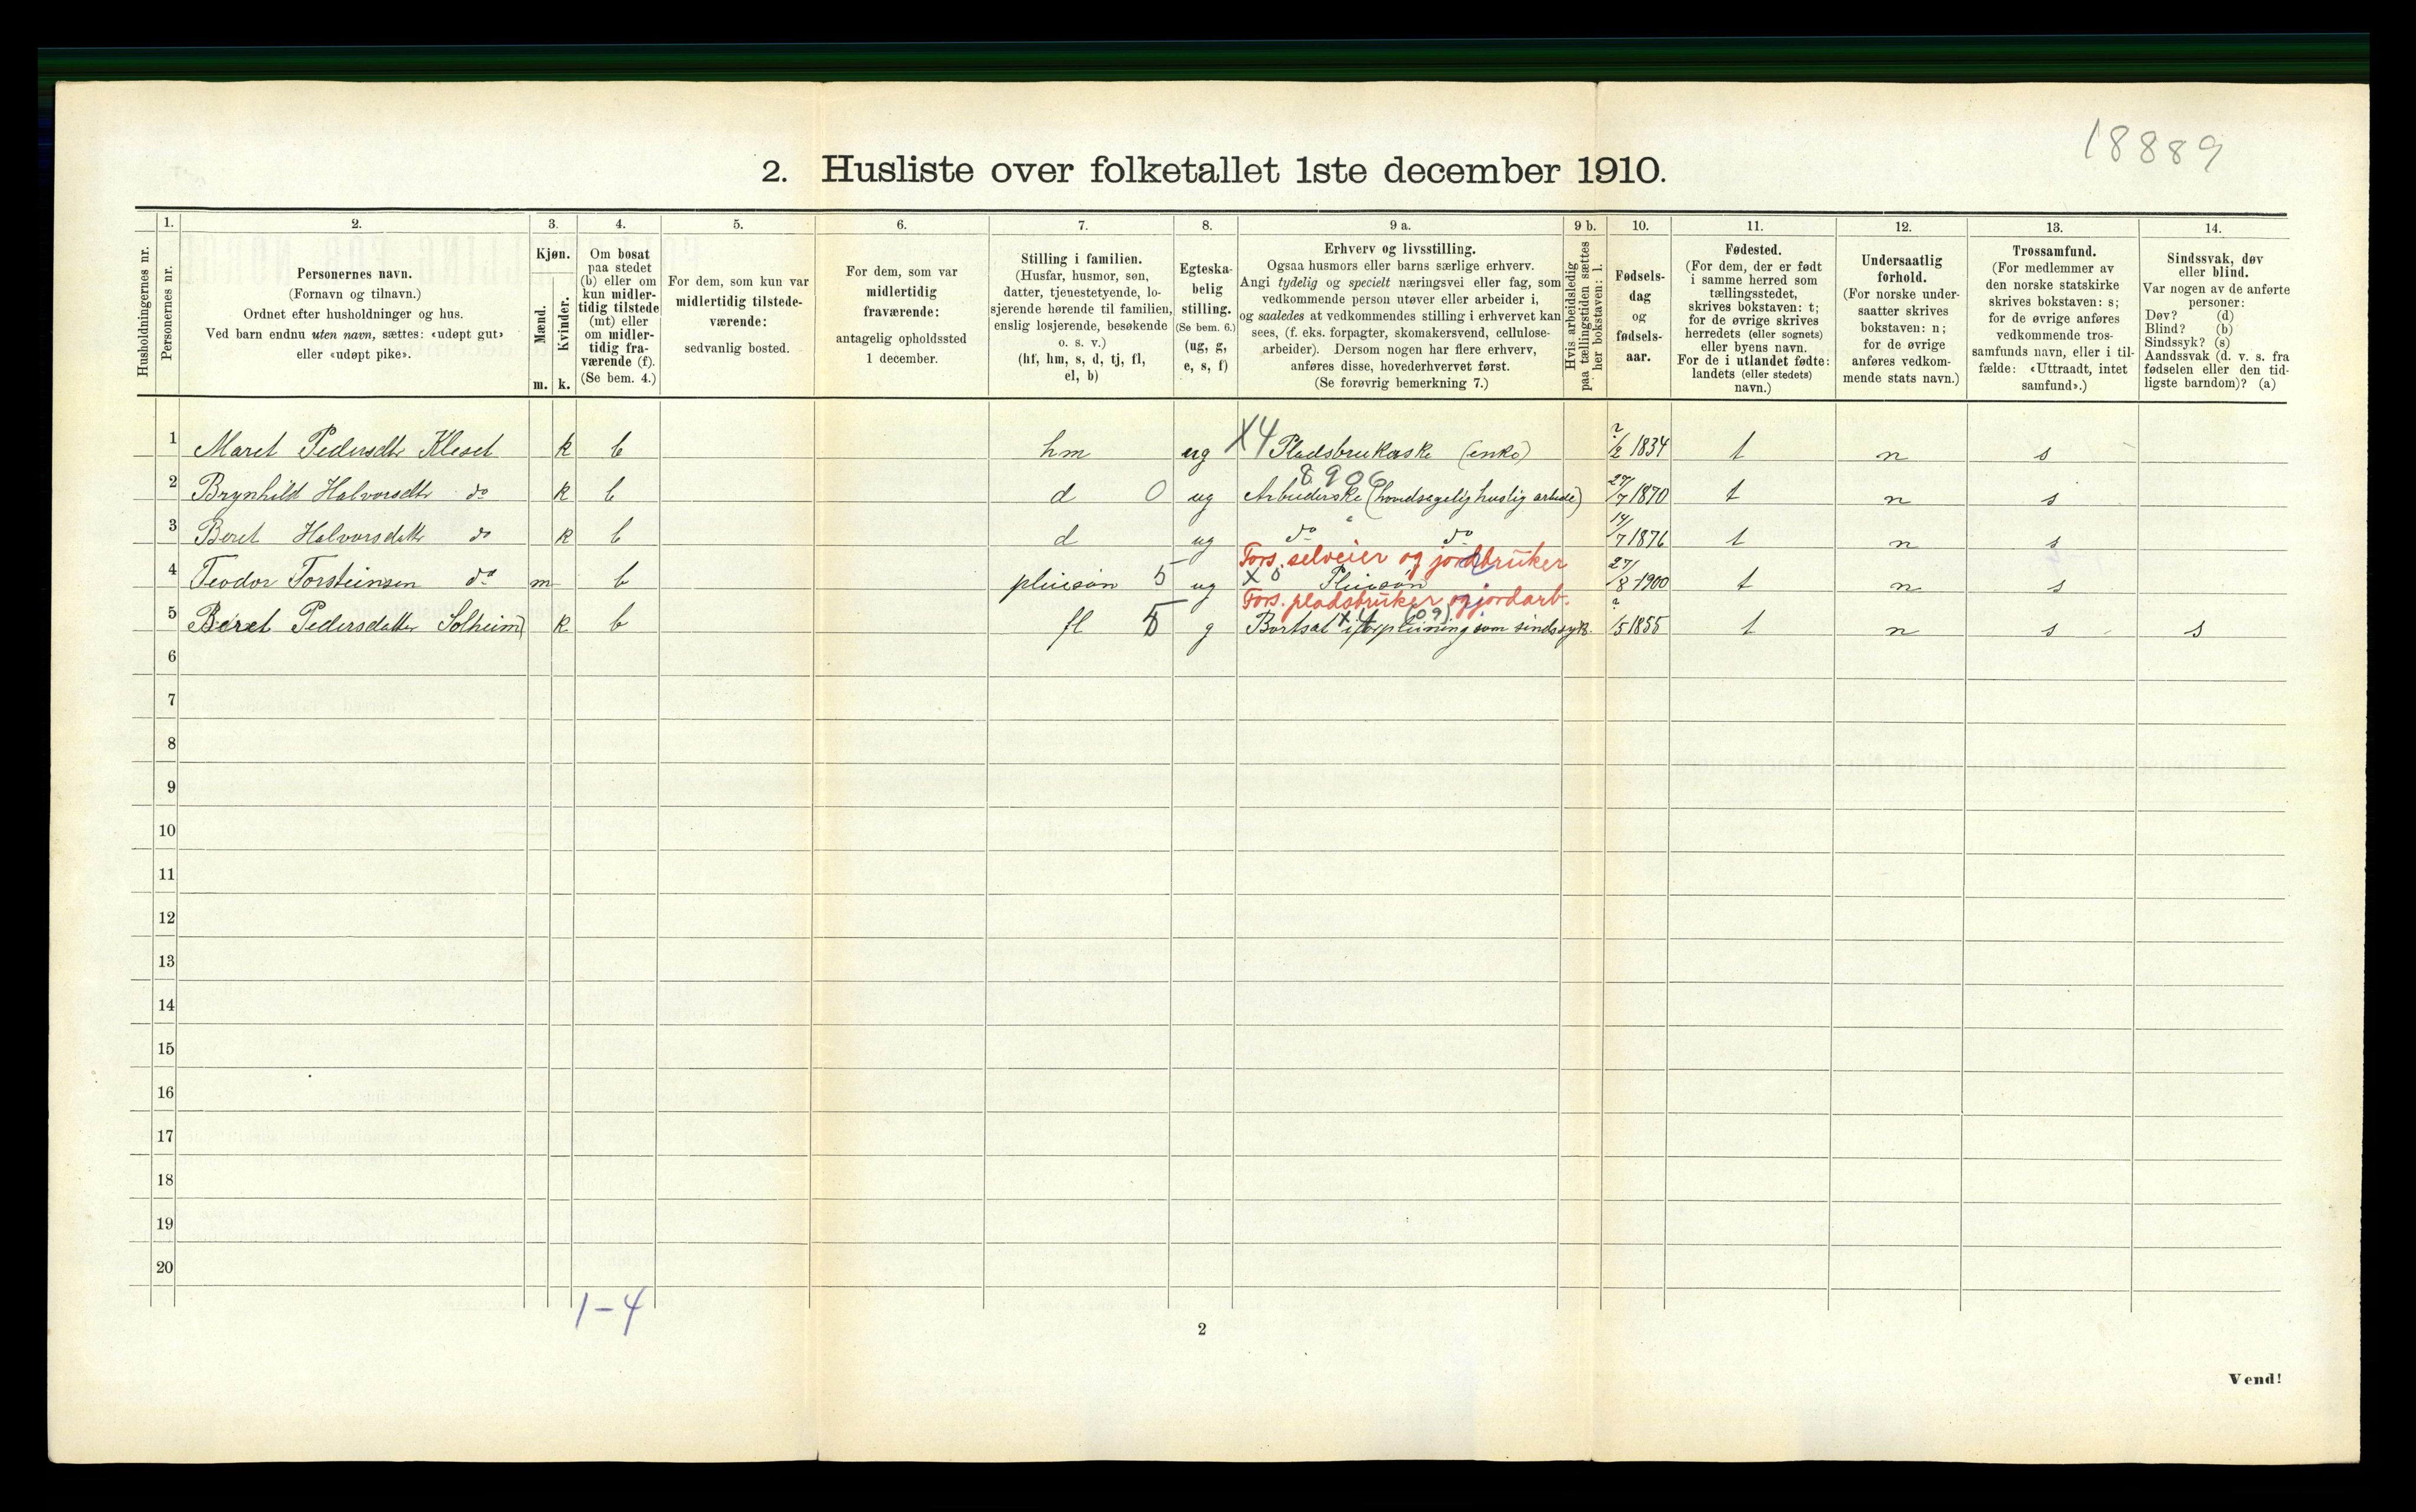 18889
2. Husliste over folketallet 1ste december 1910.
Husholdningernes nr.
1.
Personernes nr.
2.
Personernes navn.
(Fornavn og tilnavn.)
Ordnet efter husholdninger og hus.
Ved barn endnu uten navn, sættes: «udøpt gut»
eller «udøpt pike».
3.
Kjøn.
Mænd.
Kvinder.
m. k.
4.
Om bosat
paa stedet
(b) eller om
kun midler-
tidig tilstede
(mt) eller
om midler-
tidig fra-
værende (f).
(Se bem. 4.)
5.
For dem, som kun var
midlertidig tilstede-
værende:
sedvanlig bosted.
6.
For dem, som var
midlertidig
fraværende:
antagelig opholdssted
1 december.
7.
Stilling i familien.
(Husfar, husmor, søn,
datter, tjenestetyende, lo-
sjerende hørende til familien,
enslig losjerende, besøkende
o. s. v.)
(hf, hm, s, d, tj, fl,
el, b)
8.
Egteska-
belig
stilling.
(Se bem. 6.)
(ug, g,
e, s, f)
9 a.
Erhverv og livsstilling.
Ogsaa husmors eller barns særlige erhverv.
Angi tydelig og specielt næringsvei eller fag, som
vedkommende person utøver eller arbeider i,
og saaledes at vedkommendes stilling i erhvervet kan
sees, (f. eks. forpagter, skomakersvend, cellulose-
arbeider). Dersom nogen har flere erhverv,
anføres disse, hovederhvervet først.
(Se forøvrig bemerkning 7.)
9 b.
Hvis arbeidsledig
paa tællingstiden sættes
her bokstaven: l.
10.
Fødsels-
dag
og
fødsels-
aar.
11.
Fødested.
(For dem, der er født
i samme herred som
tællingsstedet,
skrives bokstaven: t;
for de øvrige skrives
herredets (eller sognets)
eller byens navn.
For de i utlandet fødte:
landets (eller stedets)
navn.)
12.
Undersaatlig
forhold.
(For norske under-
saatter skrives
bokstaven: n;
for de øvrige
anføres vedkom-
mende stats navn.)
13.
Trossamfund.
(For medlemmer av
den norske statskirke
skrives bokstaven: s;
for de øvrige anføres
vedkommende tros-
samfunds navn, eller i til-
fælde: «Uttraadt, intet
samfund».)
14.
Sindssvak, døv
eller blind.
Var nogen av de anførte
personer:
Døv? (d)
Blind? (b)
Sindssyk? (s)
Aandssvak (d. v. s. fra
fødselen eller den tid-
ligste barndom)? (a)
1 Maret Pedersdtr Kleset k b hm ug X4 Pladsbrukerske (enke) ?/2 1834 t n s
8906
2 Brynhild Halvorsdtr do k b d 0 ug Arbeiderske (hovedsagelig huslig arbeide) 27/7 1870 t n s
3 Beret Halvorsdatter do k b d ug do do 14/7 1876 t n s
Fors. selveier og jordbruker
4 Teodor Torsteinsen do m b pleiesøn 5 ug X 0 Pleiesøn 27/8 1900 t n s
Fors. pladsbruker og jordarb.
X 4 (09)
5 Beret Pedersdatter Solheim k b fl 5 g Bortsat i forpleining som sindssyk. ?/5 1855 t n s s
6
7
8
9
10
11
12
13
14
15
16
17
18
19
20
1-4
2
Vend!